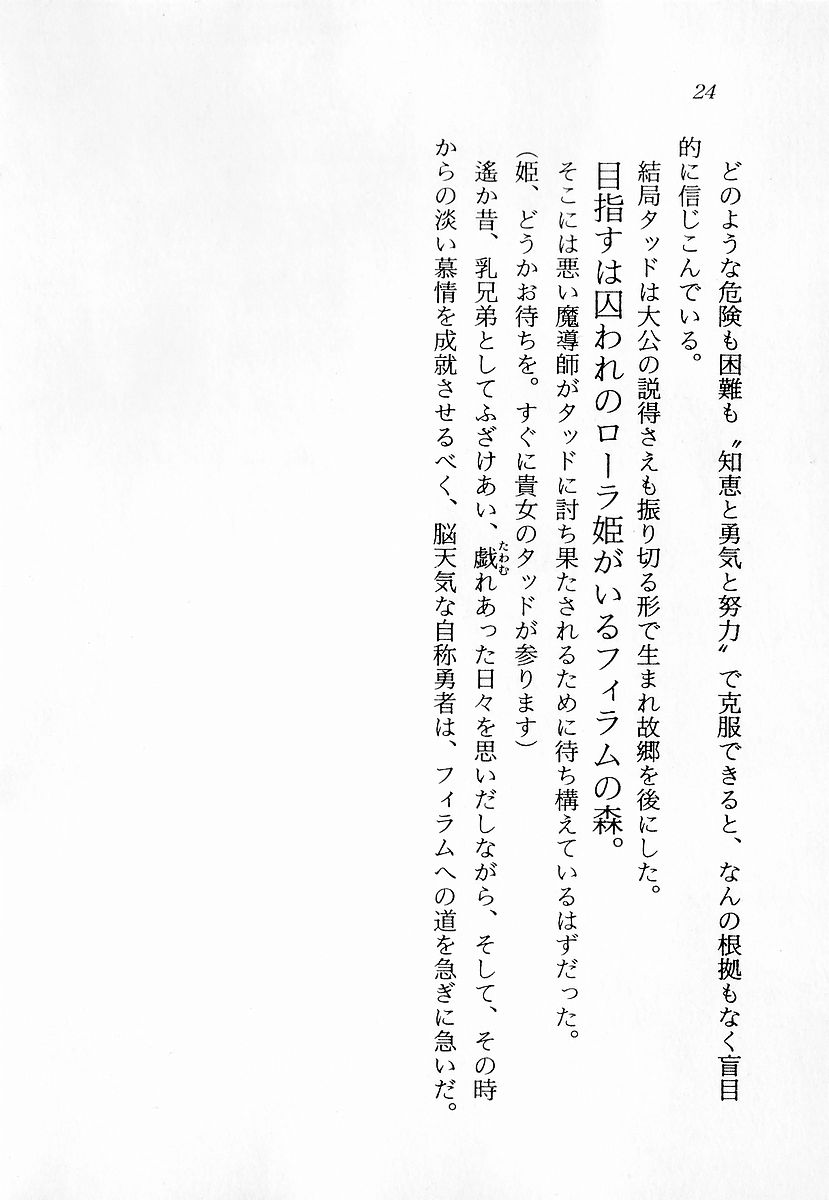 24
どのような危険も困難も〝知恵と勇気と努力〟で克服できると、なんの根拠もなく盲目
的に信じこんでいる。
結局タッドは大公の説得さえも振り切る形で生まれ故郷を後にした。
目指すは囚われのローラ姫がいるフィラムの森。
そこには悪い魔導師がタッドに討ち果たされるために待ち構えているはずだった。
(姫、どうかお待ちを。すぐに貴女のタッドが参ります)
遙か昔、乳兄弟としてふざけあい、戯れあった日々を思いだしながら、そして、その時
たわむ
からの淡い慕情を成就させるべく、脳天気な自称勇者は、フィラムへの道を急ぎに急いだ。